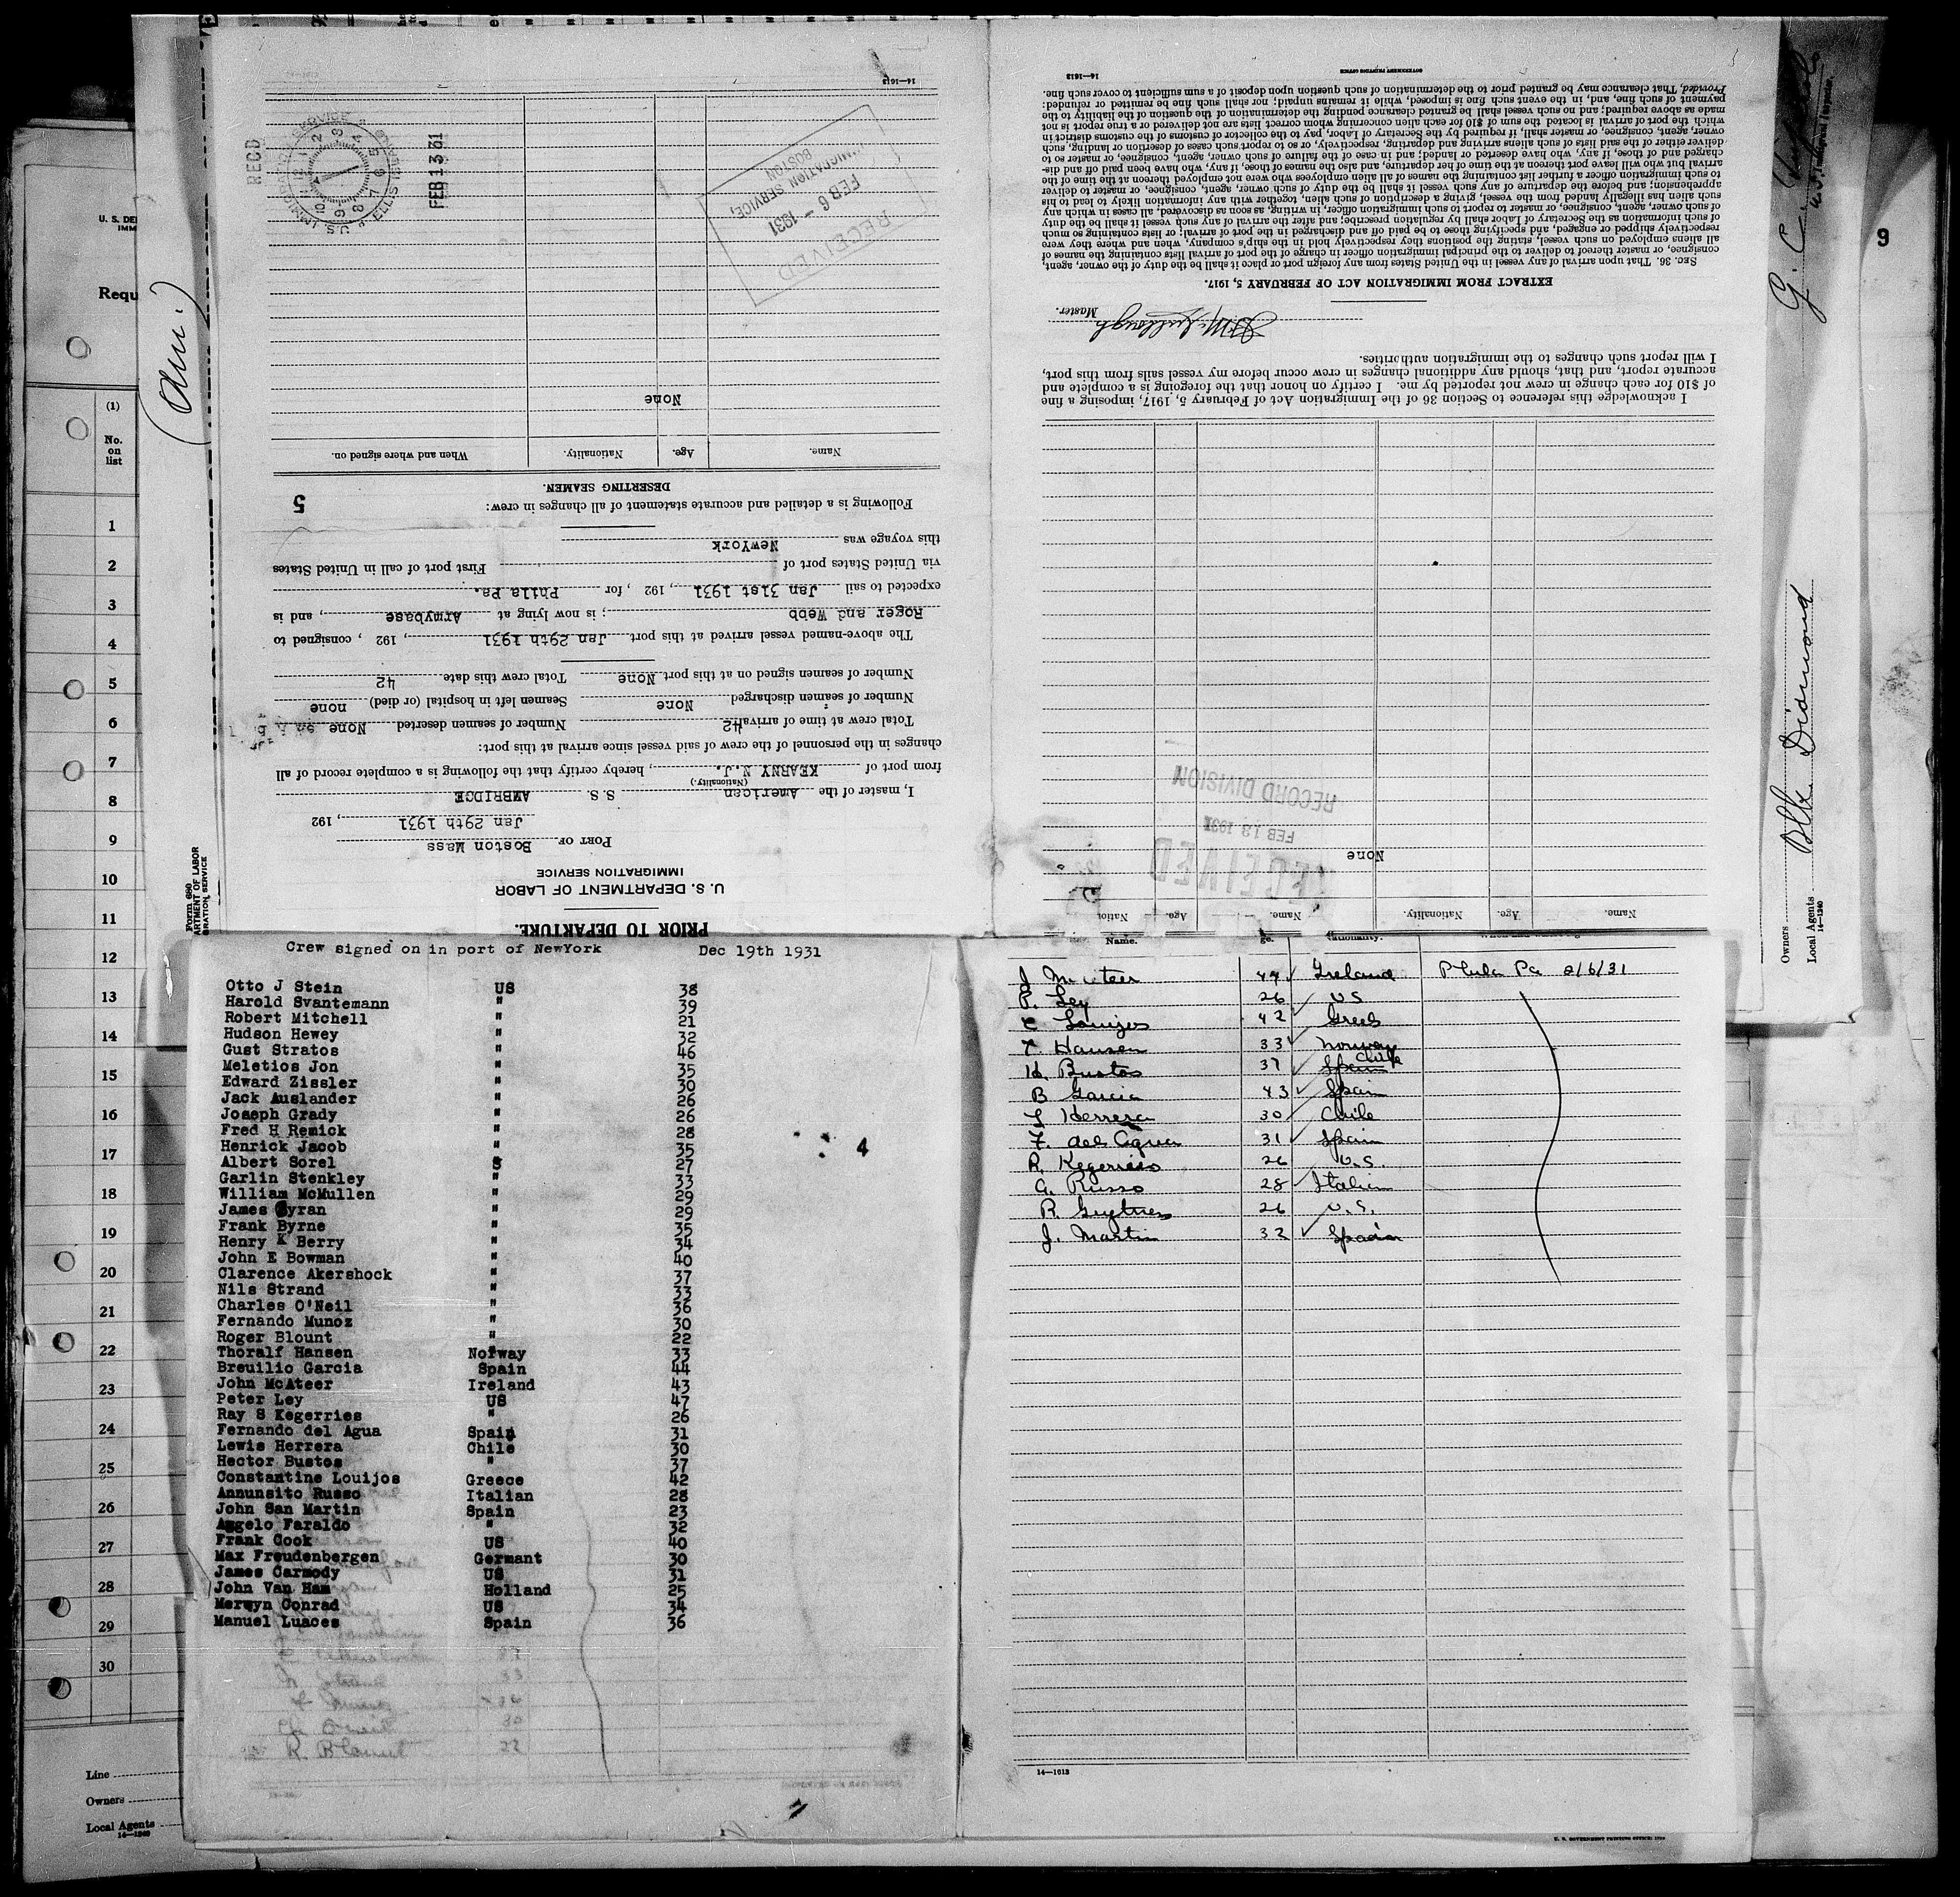 PRIOR TO DEPARTURE.
U. S. DEPARTMENT OF LABOR
IMMIGRATION SERVICE
PORT OF Boston Mass
Jan 29th 1931, 192
I, master of the American S. S. AMBRIDGE
(Nationality.)
from port of KEARNY N.J., hereby certify that the following is a complete record of all
changes in the personnel of the crew of said vessel since arrival at this port:
Total crew at time of arrival 42 Number of seamen deserted None
Number of seamen discharged None Seamen left in hospital (or died) none
Number of seamen signed on at this port None Total crew this date 42
The above-named vessel arrived at this port Jan 29th 1931, 192 , consigned to
Roger and Webb ; is now lying at Armybase, and is
expected to sail Jan 31st 1931, 192 , for Phila Pa.
via United States port of First port of call in United States
this voyage was NewYork
Following is a detailed and accurate statement of all changes in crew:
DESERTING SEAMEN.
5
Name. Age. Nationality. When and where signed on.
None
RECEIVED
FEB 6 - 1931
IMMIGRATION SERVICE,
BOSTON
RECD
FEB 13 31
14—1613
Name. Age. Nationality. Name. Age.
None
RECEIVED
FEB 13 1931
RECORD DIVISION
I acknowledge this reference to Section 36 of the Immigration Act of February 5, 1917, imposing a fine
of $10 for each change in crew not reported by me. I certify on honor that the foregoing is a complete and
accurate report, and that, should any additional changes in crew occur before my vessel sails from this port,
I will report such changes to the immigration authorities.
Master.
EXTRACT FROM IMMIGRATION ACT OF FEBRUARY 5, 1917.
SEC. 36. That upon arrival of any vessel in the United States from any foreign port or place it shall be the duty of the owner, agent,
consignee, or master thereof to deliver to the principal immigration officer in charge of the port of arrival lists containing the names of
all aliens employed on such vessel, stating the positions they respectively hold in the ship's company, when and where they were
respectively shipped or engaged, and specifying those to be paid off and discharged in the port of arrival; or lists containing so much
of such information as the Secretary of Labor shall by regulation prescribe; and after the arrival of any such vessel it shall be the duty
of such owner, agent, consignee, or master to report to such immigration officer, in writing, as soon as discovered, all cases in which any
such alien has illegally landed from the vessel, giving a description of such alien, together with any information likely to lead to his
apprehension; and before the departure of any such vessel it shall be the duty of such owner, agent, consignee, or master to deliver
to such immigration officer a further list containing the names of all alien employees who were not employed thereon at the time of the
arrival but who will leave port thereon at the time of her departure, and also the names of those, if any, who have been paid off and dis-
charged and of those, if any, who have deserted or landed; and in case of the failure of such owner, agent, consignee, or master so to
deliver either of the said lists of such aliens arriving and departing, respectively, or so to report such cases of desertion or landing, such
owner, agent, consignee, or master shall, if required by the Secretary of Labor, pay to the collector of customs of the customs district in
which the port of arrival is located the sum of $10 for each alien concerning whom correct lists are not delivered or a true report is not
made as above required; and no such vessel shall be granted clearance pending the determination of the question of the liability to the
payment of such fine, and, in the event such fine is imposed, while it remains unpaid; nor shall such fine be remitted or refunded:
Provided, That clearance may be granted prior to the determination of such question upon deposit of a sum sufficient to cover such fine.
14—1613
GOVERNMENT PRINTING OFFICE
Crew signed on in port of NewYork Dec 19th 1931
Otto J Stein US 38
Harold Svantemann " 39
Robert Mitchell " 21
Hudson Hewey " 32
Gust Stratos " 46
Meletios Jon " 35
Edward Zissler " 30
Jack Auslander " 26
Joseph Grady " 26
Fred H Remick " 28
Henrick Jacob " 35
Albert Sorel 27
Garlin Stenkley " 33
William McMullen " 29
James Byran " 29
Frank Byrne " 35
Henry K Berry " 34
John E Bowman " 40
Clarence Akershock " 37
Nils Strand " 33
Charles O'Neil " 36
Fernando Munoz " 30
Roger Blount " 22
Thoralf Hansen Norway 33
Breuilio Garcia Spain 44
John McAteer Ireland 43
Peter Ley US 47
Ray S Kegerries " 26
Fernando del Agua Spain 31
Lewis Herrera Chile 30
Hector Bustos " 37
Constantine Louijos Greece 42
Annunsito Russo Italian 28
John San Martin Spain 23
Aggelo Faraldo " 32
Frank Cook US 40
Max Freudenbergen Germant 30
James Carmody US 31
John Van Ham Holland 25
Merwyn Conrad US 34
Manuel Luaces Spain 36
R. Blount 22
4
Name.
J McAteer 44 Ireland Phila Pa 2/6/31
P. Ley 26 US
C Louijos 42 Greek
T. Hansen 33 Norway
H. Bustos 37 Spain Chile
B Garcia 43 Spain
L Herrera 30 Chile
F. del Agua 31 Spain
R. Kegerries 26 U.S.
A. Russo 28 Italian
R. 26 U.S.
J. Martin 32 Spain
14—1613
U. S. GOVERNMENT PRINTING OFFICE
U. S. DE
IMM
Requ
(1)
No.
on
list
1
2
3
4
5
6
7
8
9
10
11
12
13
14
15
16
17
18
19
20
21
22
23
24
25
26
27
28
29
30
Line
Owners
Local Agents
14—1240
(Am.)
Form 680
ARTMENT OF LABOR
GRATION SERVICE
9
Owners
Local Agents
14—1240